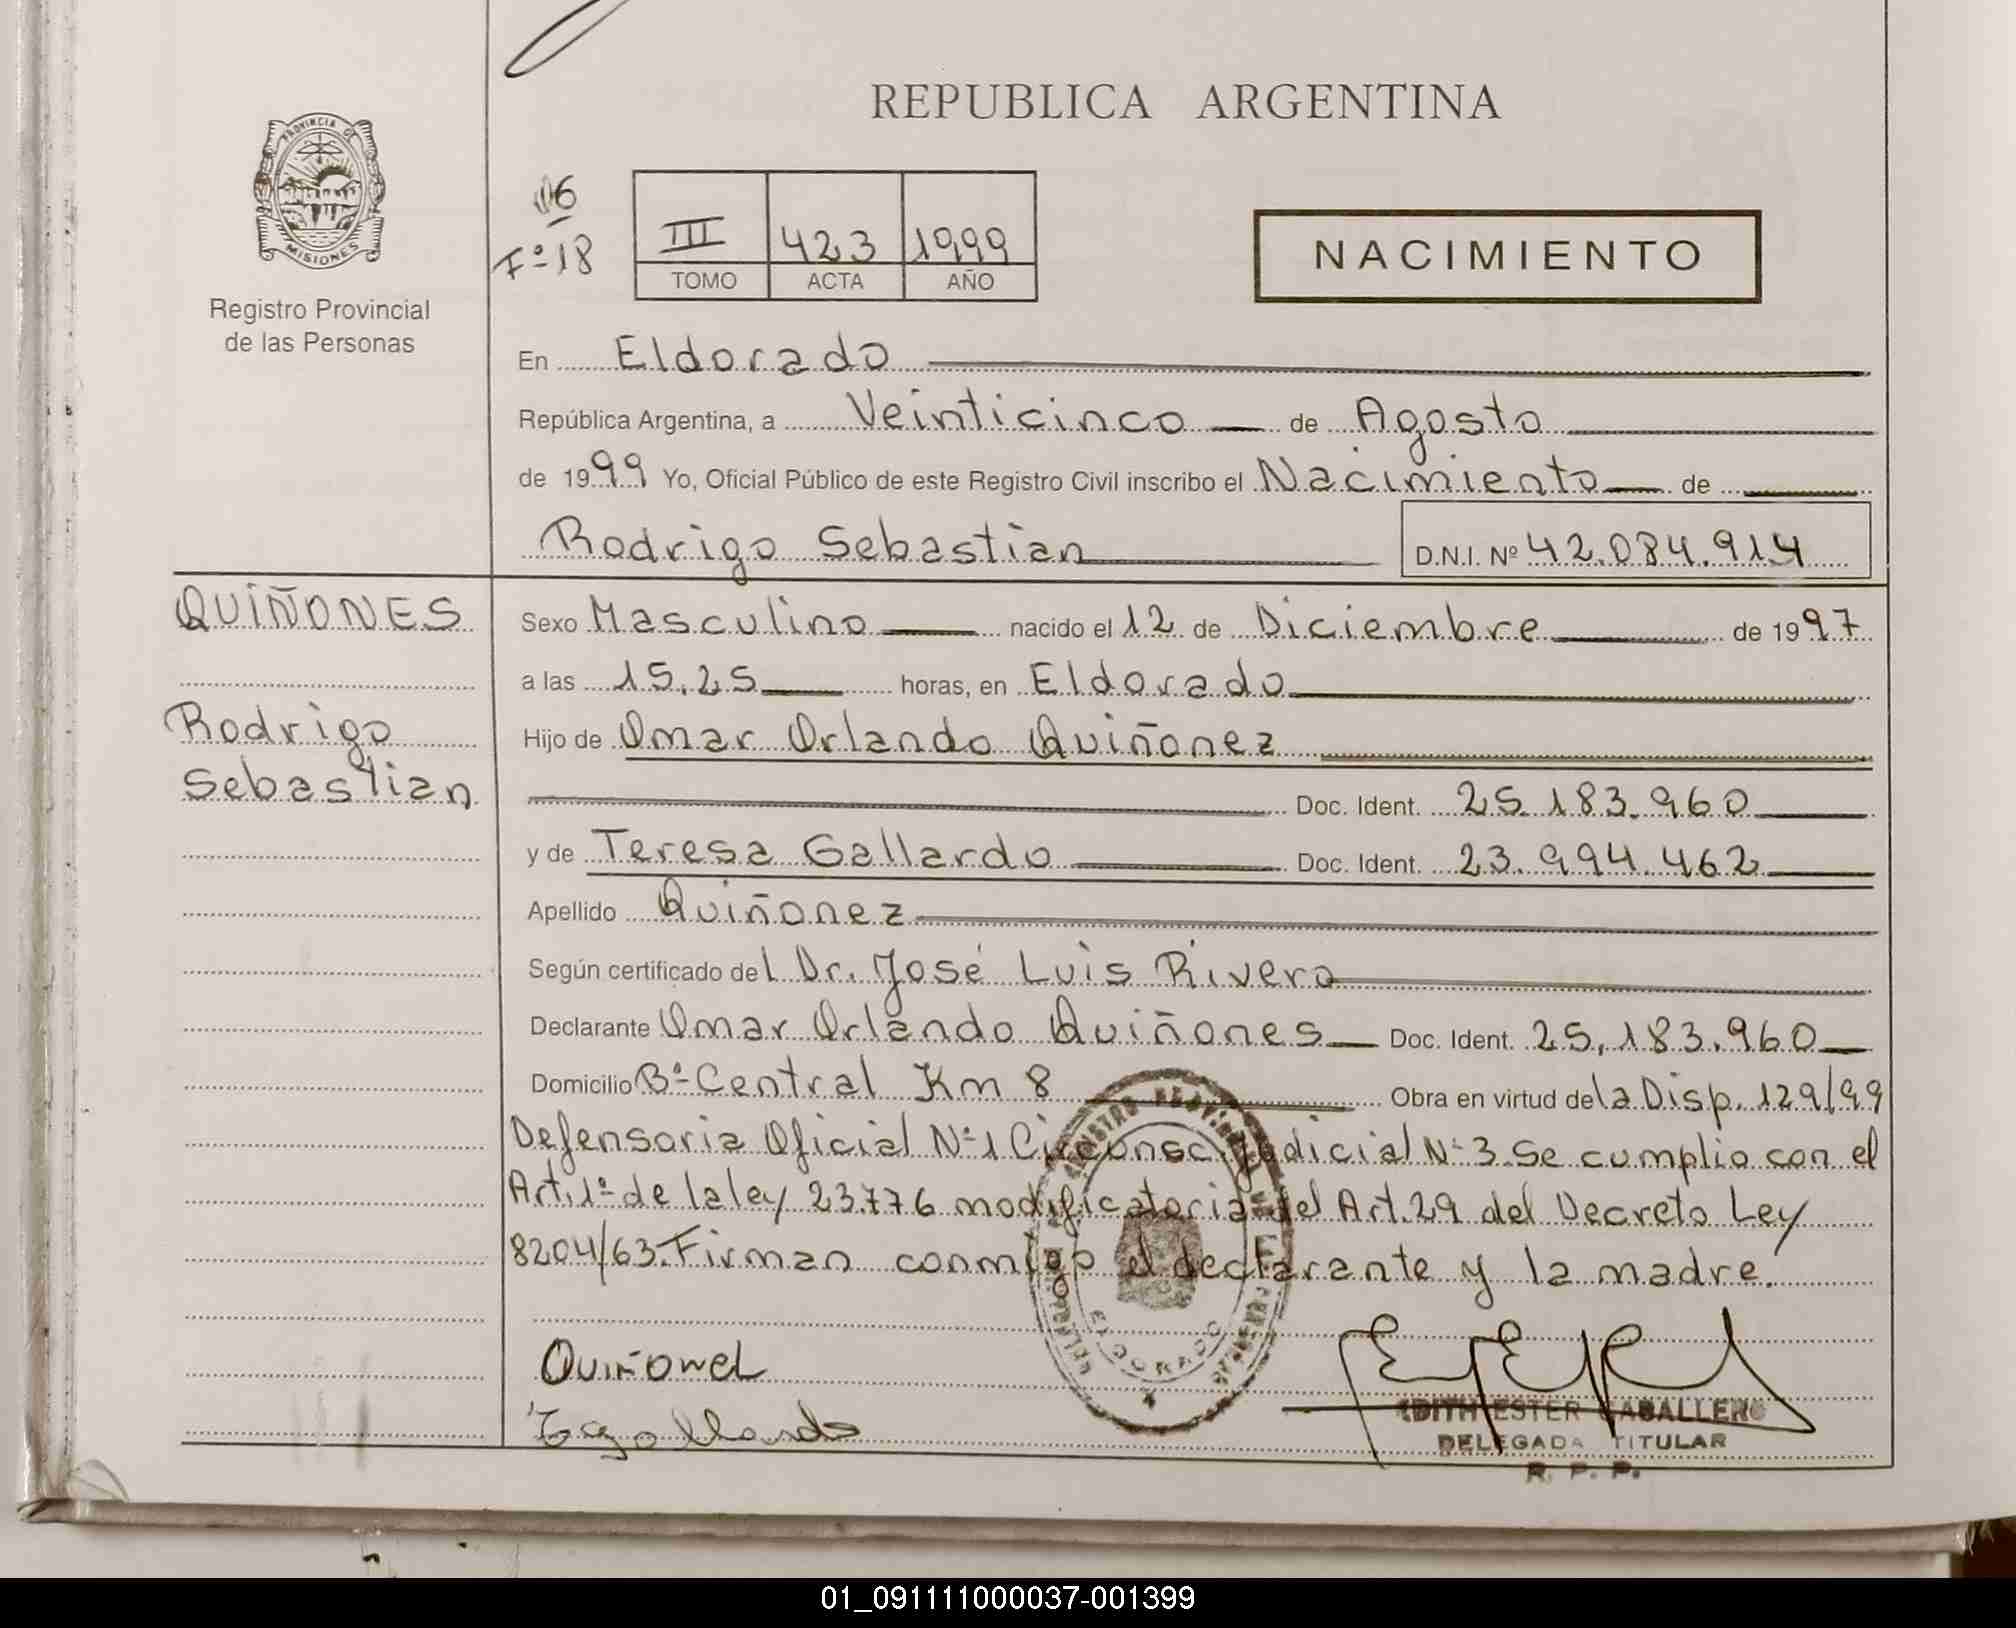 REPUBLICA ARGENTINA
PROVINCIA DE
MISIONES
Registro Provincial
de las Personas
Fº 18
III 423 1999
TOMO ACTA AÑO
NACIMIENTO
En Eldorado
República Argentina, a Veinticinco de Agosto
de 1999 Yo, Oficial Público de este Registro Civil inscribo el Nacimiento de
Rodrigo Sebastian D.N.I. Nº 42.084.914
QUIÑONES
Rodrigo
Sebastian
Sexo Masculino nacido el 12 de Diciembre de 1997
a las 15.25 horas, en Eldorado
Hijo de Omar Orlando Quiñonez
Doc. Ident. 25.183.960
y de Teresa Gallardo Doc. Ident. 23.994.462
Apellido Quiñonez
Según certificado del Dr. José Luis Rivero
Declarante Omar Orlando Quiñones Doc. Ident. 25.183.960
Domicilio Bº Central Km 8 Obra en virtud de la Disp. 129/99
Defensoria Oficial Nº 1 Circunsc. Judicial Nº 3. Se cumplio con el
Art. 1º de la ley 23.776 modificatoria del Art. 29 del Decreto Ley
8204/63. Firman conmigo el declarante y la madre.
ELDORADO
Tgallardo
EDITH ESTER CABALLERO
DELEGADA TITULAR
R. P. P.
01_091111000037-001399